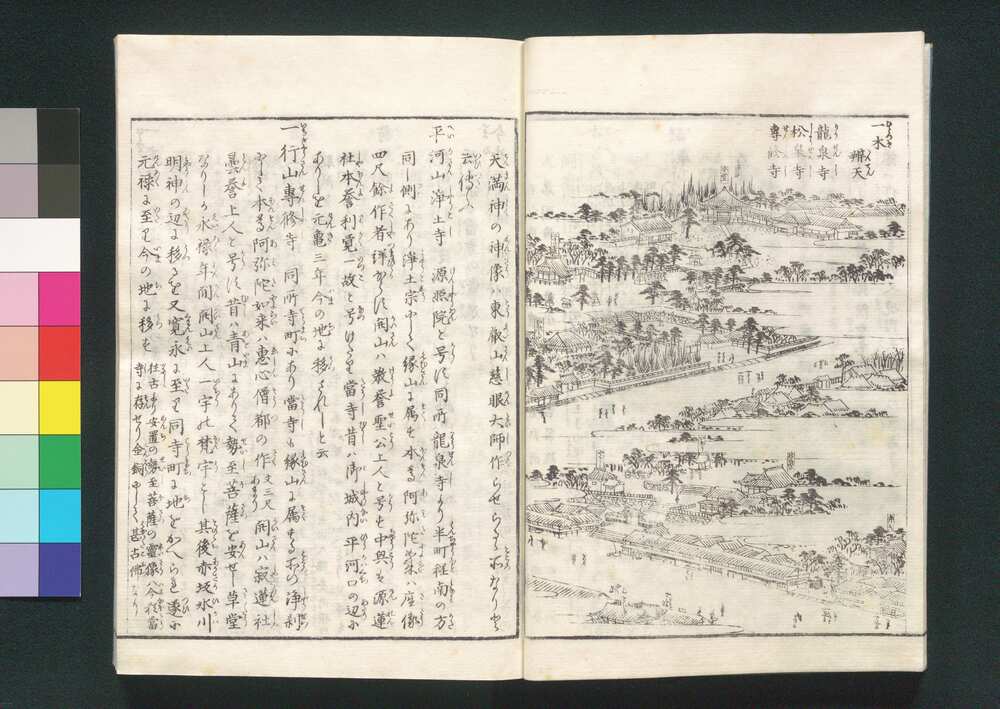 一木
辨天
龍泉寺
松泉寺
專修寺
天満神の神像ハ東叡山慈眼大師作らせらるゝ所なりと
云傳ふ
平河山浄土寺 源照院と号す同所龍泉寺より半町程南の方
同し側にあり浄土宗にして縁山に属す本尊阿弥陀如来ハ座像
四尺餘作者詳ならす開山ハ教誉聖公上人と号す中興を源蓮
社本誉利覚一故と号けたり當寺昔ハ御城内平河口の辺に
ありしを元亀三年今の地に移されしと云
一行山專修寺 同所寺町にあり當寺も縁山に属する所の浄刹
にして本尊阿弥陀如来ハ恵心僧都の作丈三尺あまり開山ハ寂蓮社
曇誉上人と号す昔ハ青山にありて勢至菩薩を安せし草堂
なりしか永禄年間開山上人一宇の梵宇とし其後赤坂氷川
明神の辺に移るを又寛永に至り同寺町に地をかへられ遂に
元禄に至り今の地に移る
往古より安置の勢至菩薩の霊像ハ今猶當
寺に存せり金銅にして甚古佛なり